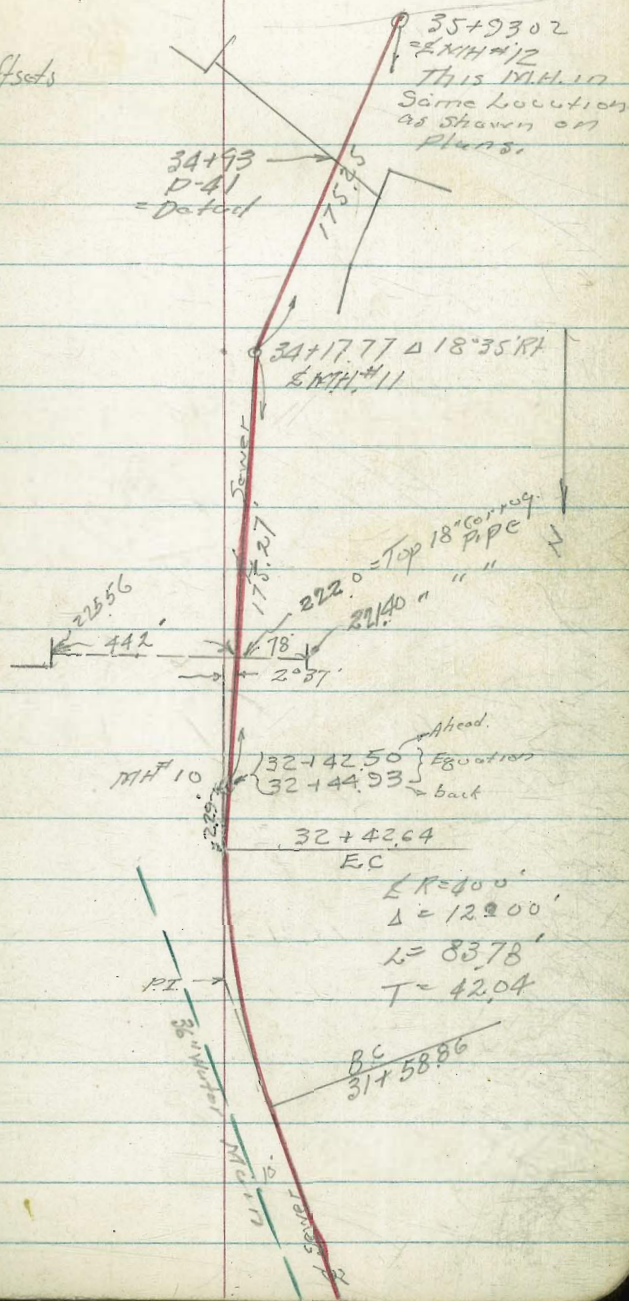 35+93 02
=₤ MH #12
This M.H. in
Same Location
as shown on
Plans.
ftsets
34+93
P-41
=Detail
175.25
34+17.77 Δ 18°35' Rt
₤ MH. #11
Sewer
175.27'
222.0 = Top 18" Corrug. Pipe
221.40 " " "
225.56
442'
78'
2°37'
N
MH# 10
32+42.50 Ahead.
32+44.93 back
Equation
=2.29'
32+42.64
E.C
₤ R=400'
Δ = 12°00'
L= 83.78'
T= 42.04'
P.I.
B.C
31+58.86
36" Water Main
10'
₤ Sewer